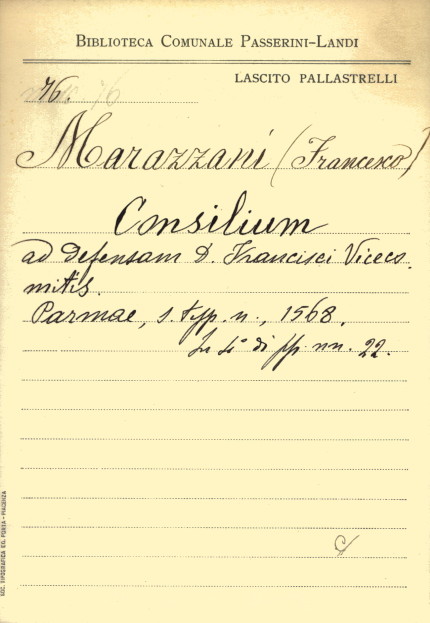 BIBLIOTECA COMUNALE PASSERINI-LANDI
LASCITO PALLASTRELLI
76.
Marazzani (Francesco)
Consilium
ad defensam D. Francisci Viceco
mitis.
Parmae, s. typ. n., 1568.
In 4° di pp. nn. 22.
SOC. TIPOGRAFICA ED. PORTA - PIACENZA